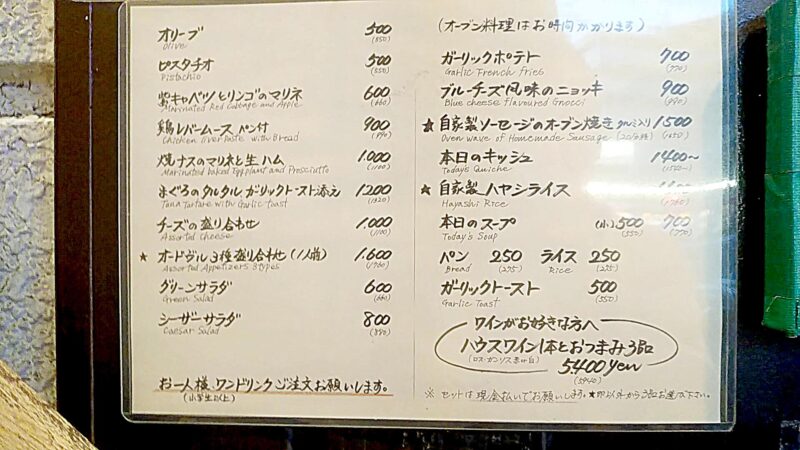 オリーブ 500
Olive (550)
ピスタチオ 500
Pistachio (550)
紫キャベツとリンゴのマリネ 600
Marinated Red Cabbage and Apple (660)
鶏レバームース パン付 900
Chicken liver Paste with Bread (990)
焼ナスのマリネと生ハム 1.000
Marinated baked Eggplant and Prosciutto (1100)
まぐろのタルタル ガリックトースト添え 1200
Tuna Tartare with Garlic toast (1320)
チーズの盛り合わせ 1.000
Assorted Cheese (1100)
★ オードヴル3種盛り合わせ(1人前) 1.600
Assorted Appetizers 3types (1760)
グリーンサラダ 600
Green Salad (660)
シーザーサラダ 800
Caesar Salad (880)
お一人様、ワンドリンクご注文お願いします。
(小学生以上)
(オーブン料理はお時間かかります)
ガーリックポテト 700
Garlic French fries (770)
ブルーチーズ風味のニョッキ 900
Blue cheese flavoured Gnocci (990)
★ 自家製ソーセージのオーブン焼き クルミ入り 1500
Oven wave of Homemade Sausage (20分程) (1650)
本日のキッシュ 1400~
Todays Quiche (1540~)
★ 自家製ハヤシライス
Hayashi Rice (1760)
本日のスープ (小)500 700
Today's Soup (550) (770)
パン 250 ライス 250
Bread (275) Rice (275)
ガーリックトースト 500
Garlic Toast (550)
ワインがお好きな方へ
ハウスワイン1本とおつまみ3品
(ロス・ガンソス 赤or白) 5400yen
(5940)
※ セットは現金払いでお願いします。★印以外から3品お選び下さい。